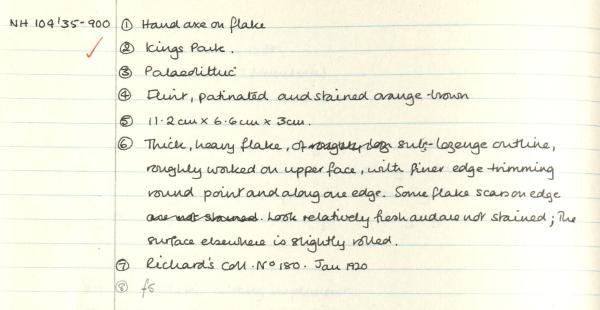 NH 104'35-900 ① Hand axe on flake
② Kings Park.
③ Palaeolithic
④ Flint, patinated and stained orange-brown
⑤ 11.2cm x 6.6cm x 3cm.
⑥ Thick, heavy flake, of roughly loz sub-lozenge outline,
roughly worked on upper face, with finer edge-trimming
round point and along one edge. Some flake scars on edge
are not stained. Look relatively fresh and are not stained; the
surface elsewhere is slightly rolled.
⑦ Richard's Coll. Nº 180. Jan 1920
⑧ f6